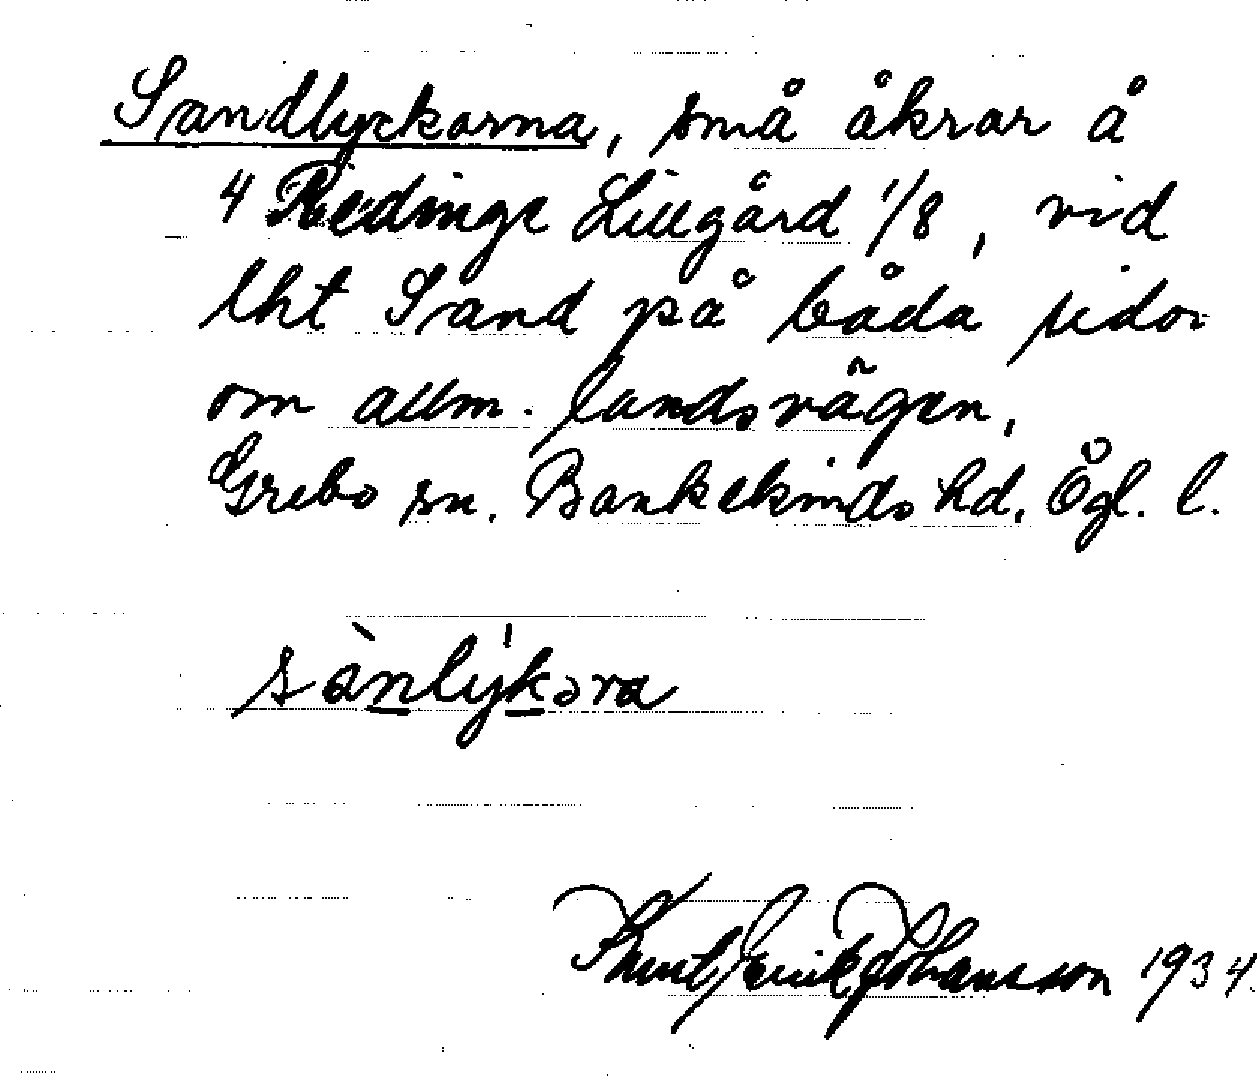 Sandlyckorna, små åkrar å
4 Redinge Lillgård 1/8, vid
lht Sand på båda sidor
om allm. landsvägen,
Grebo sn. Bankekinds hd. Ögl. l.
sànlýkora
Knut Erik Johansson 1934.